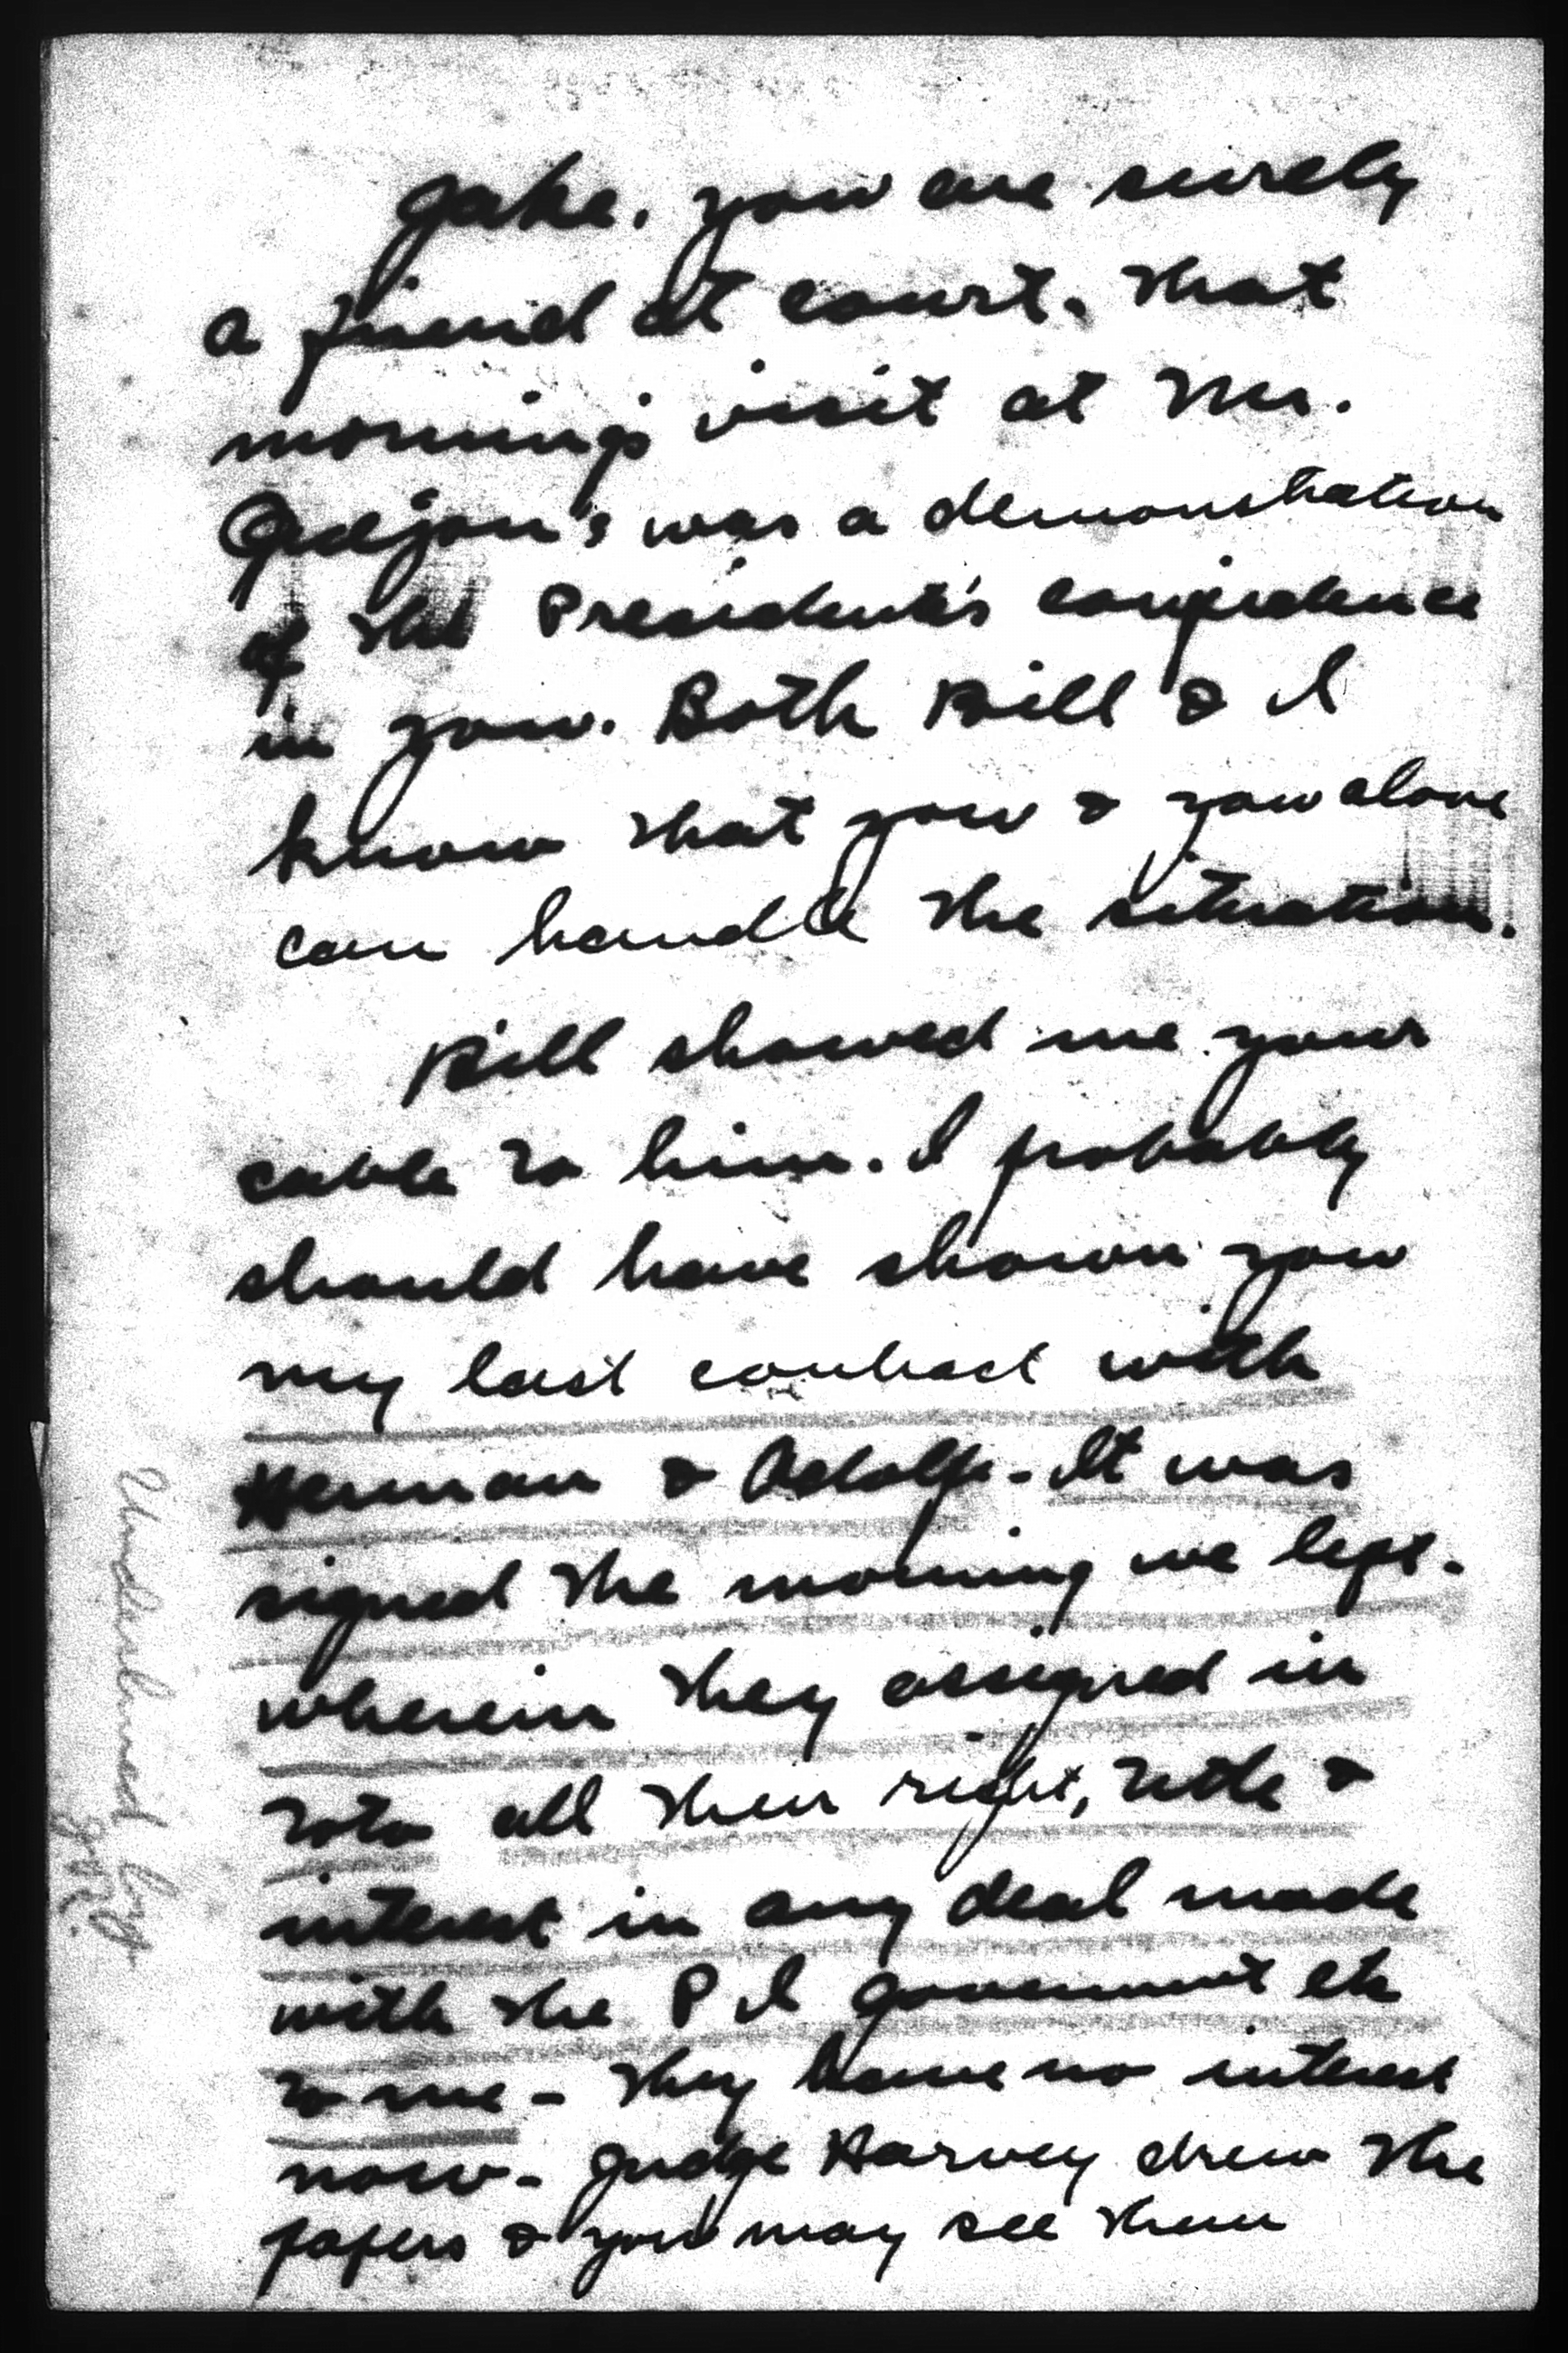 Jake. You are surely
a friend at court. That
morning's visit at Mr.
was a demonstration
of the President's confidence
in you. Both Bill & I
know that you & you alone
can handle the situation.
Bill showed me your
cable to him. I probably
should have shown you
my last contract with
Herman & Adolf - It was
signed the morning we left -
wherein they assigned in
toto all their right, title &
interest in any deal made
with the P I government etc
to me - They have no interest
now - Judge Harvey drew the
papers & you may see them
Underlined by